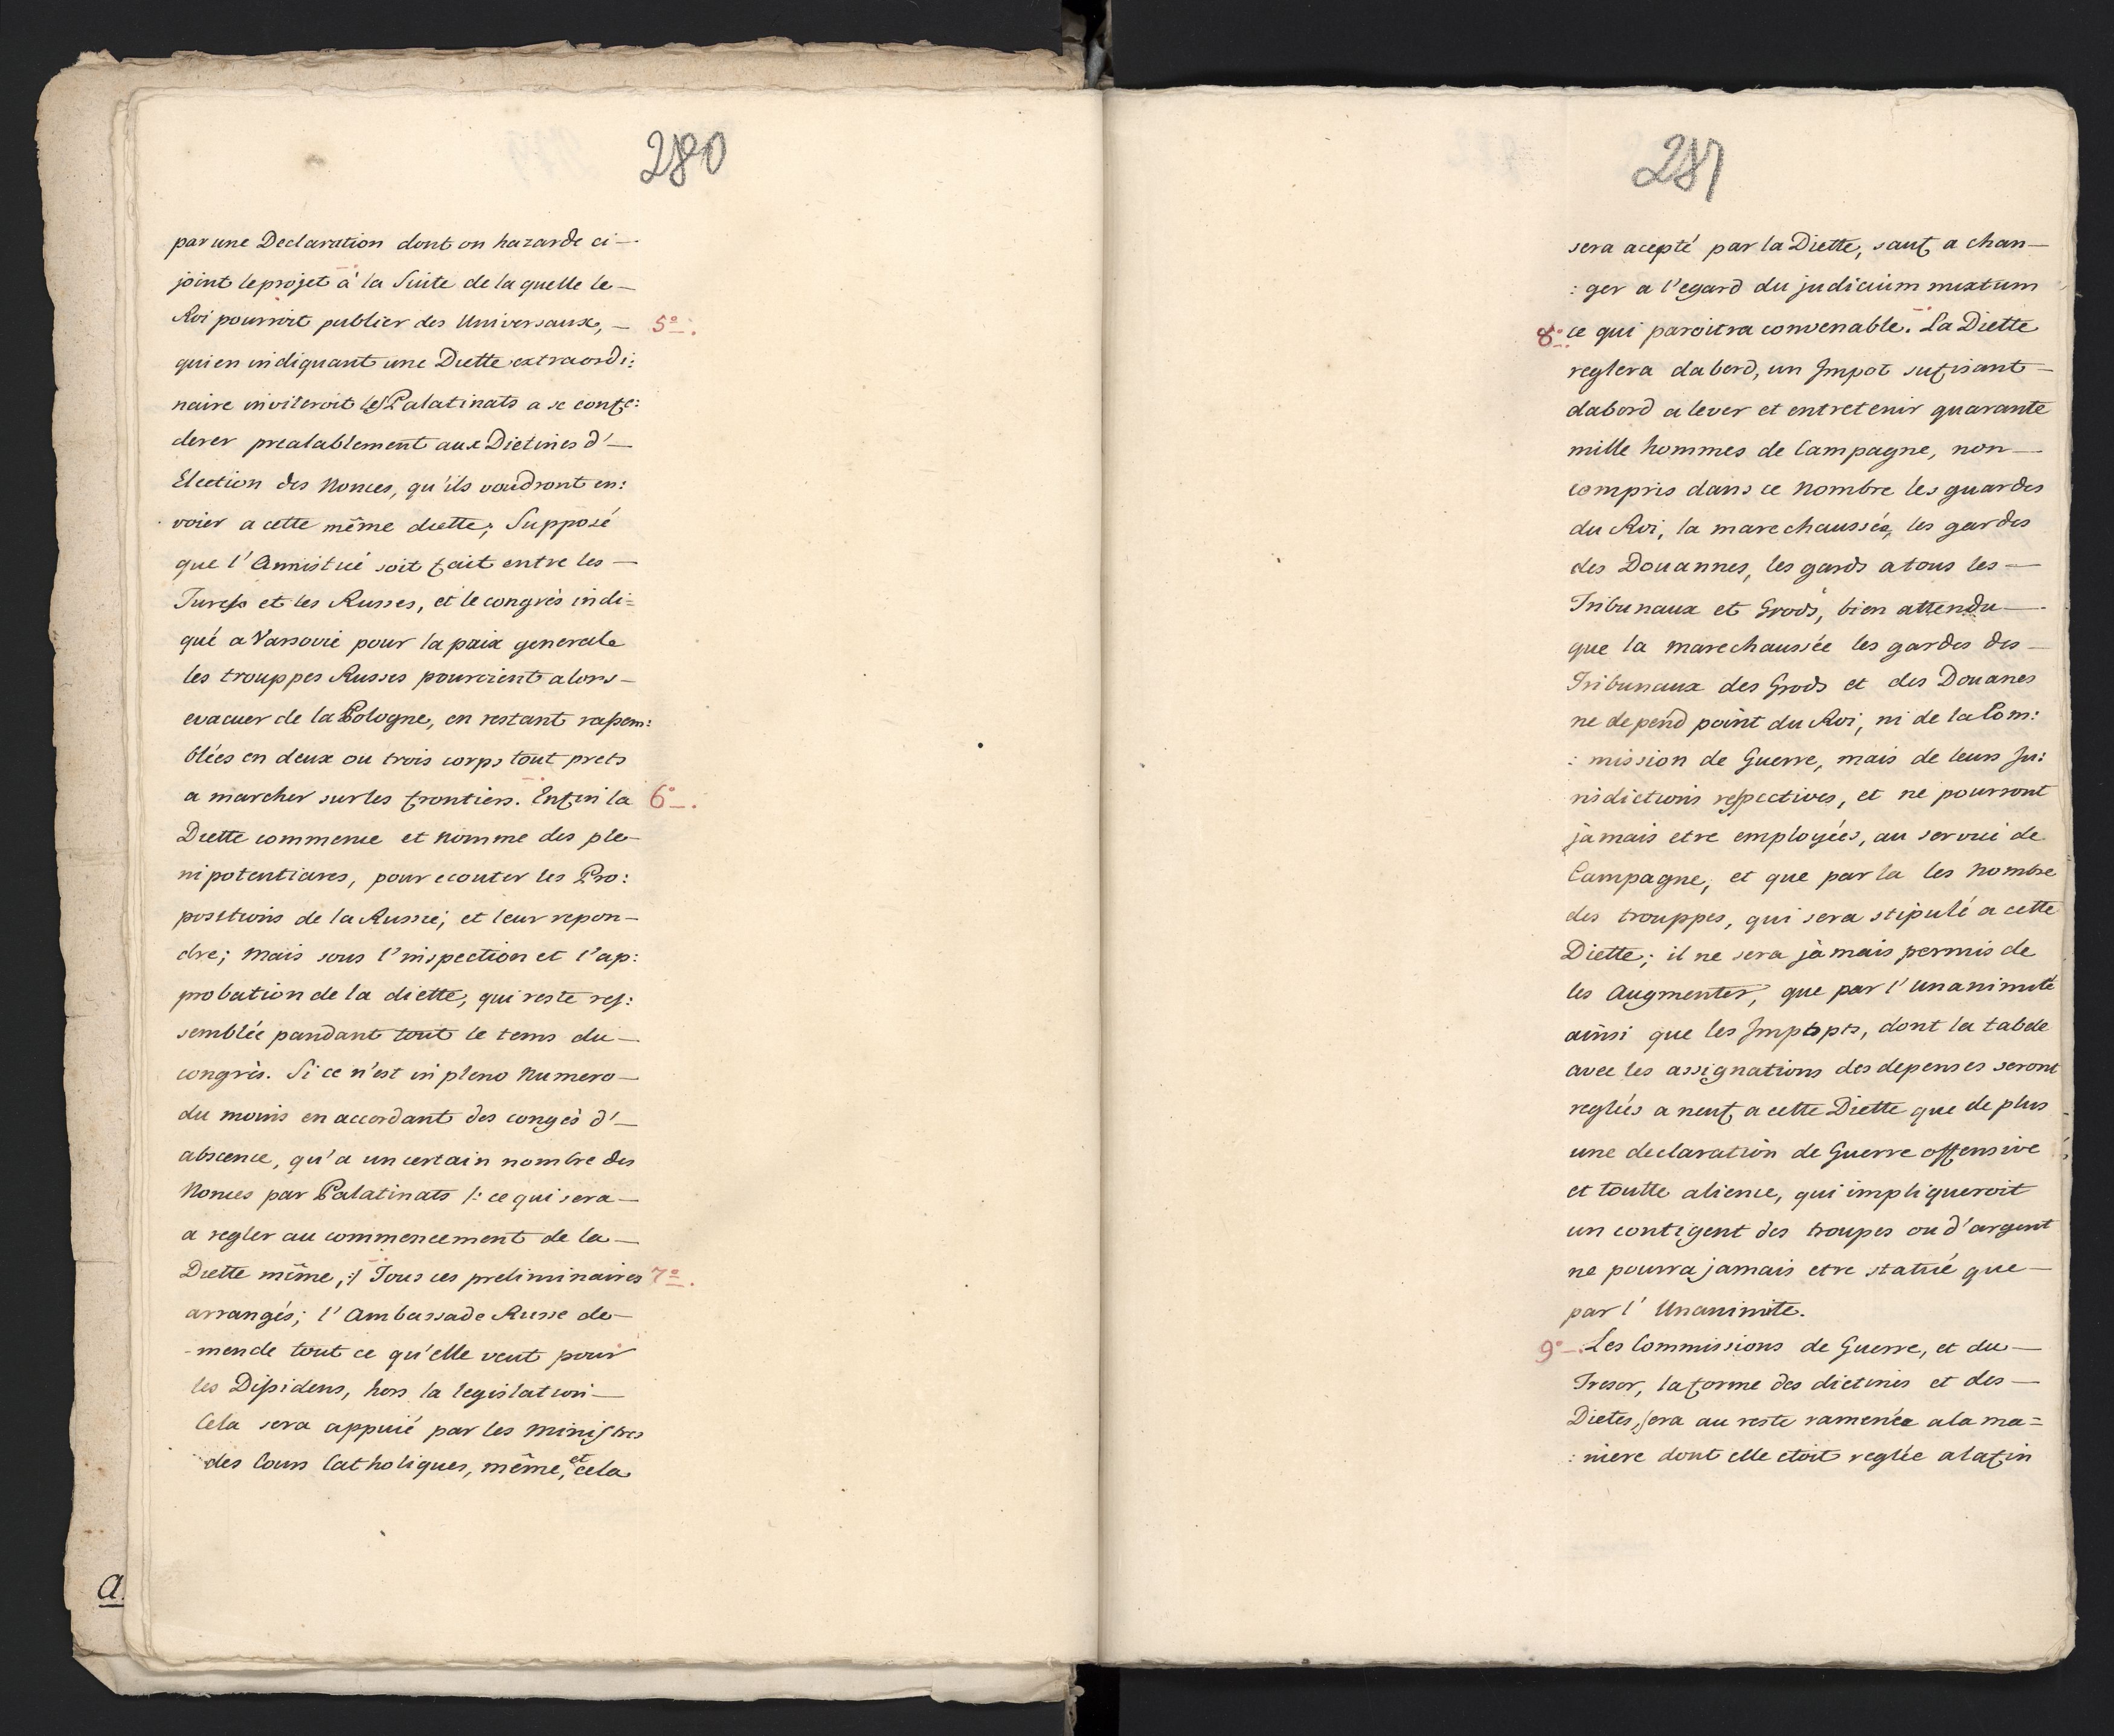 280
par une Declaration dont on hazarde ci—
joint le projet à la Suite de la quelle le—
Roi pourroit publier des Universaux, — 5º.
qui en indiquant une Diette extraordi:
naire inviteroit les Palatinats a se confe:
derer prealablement aux Dietines d'—
Election des Nonces, qu'ils voudront en:
voier a cette même diette; Supposé
que l'Amistice soit fait entre les—
Turcs et les Russes, et le congrès indi=
qué a Varsovie pour la paix generale
les trouppes Russes pouroient alors—
evacuer de la Pologne, en restant rassem:
blées en deux ou trois corps tout prets
a marcher sur les frontiers. Enfin la 6º.
Diette commence et nomme des ple-
nipotentiares, pour ecouter les Pro:
positions de la Russie; et leur repon-
dre; mais sous l'inspection et l'ap:
probation de la diette, qui reste res:
semblée pandant tout le tems du—
congrès. Si ce n'est in pleno Numero—
du moins en accordant des congès d'—
abscence, qu'a un certain nombre des
Nonces par Palatinats /: ce qui sera—
a regler au commencement de la—
Diette même, :/ Tous ces preliminaires 7º.
arrangés; l'Ambassade Russe de—
-mende tout ce qu'elle veut pour
les Dissidens, hors la legislation—
Cela sera appuié par les Ministres
des Cours Catholiques, même, et cela
a.
281
sera acepté par la Diette, sauf a chan—
:ger a l'egard du judicium mixtum
8º. ce qui paroitra convenable. La Diette
reglera dabord, un Impot sufisant—
dabord a lever et entretenir quarante
mille hommes de Campagne, non—
compris dans ce nombre les guardes
du Roi, la marechaussée, les gardes
des Douannes, les gards a tous les—
Tribunaux et Grods, bien attendu—
que la marechaussée les gardes des—
Tribunaux des Grods et des Douanes
ne depend point du Roi, ni de la Com:
:mission de Guerre, mais de leurs Ju:
risdictions respectives, et ne pourront
jamais etre employées, au service de
Campagne, et que par la les nombre
des trouppes, qui sera stipulé a cette
Diette; il ne sera jamais permis de
les Augmenter, que par l'unanimité
ainsi que les Impopts, dont la tabele
avec les assignations des depenses seront
reglées a neuf a cette Diette que de plus
une declaration de Guerre offensive
et toutte alience, qui impliqueroit
un contigent des troupes ou d'argent
ne pourra jamais etre statué que—
par l'Unanimité.
9º. Les Commissions de Guerre, et du—
Tresor, la forme des dietines et des—
Dietes, sera au reste ramenée a la ma=
:niere dont elle etoit reglée a la fin